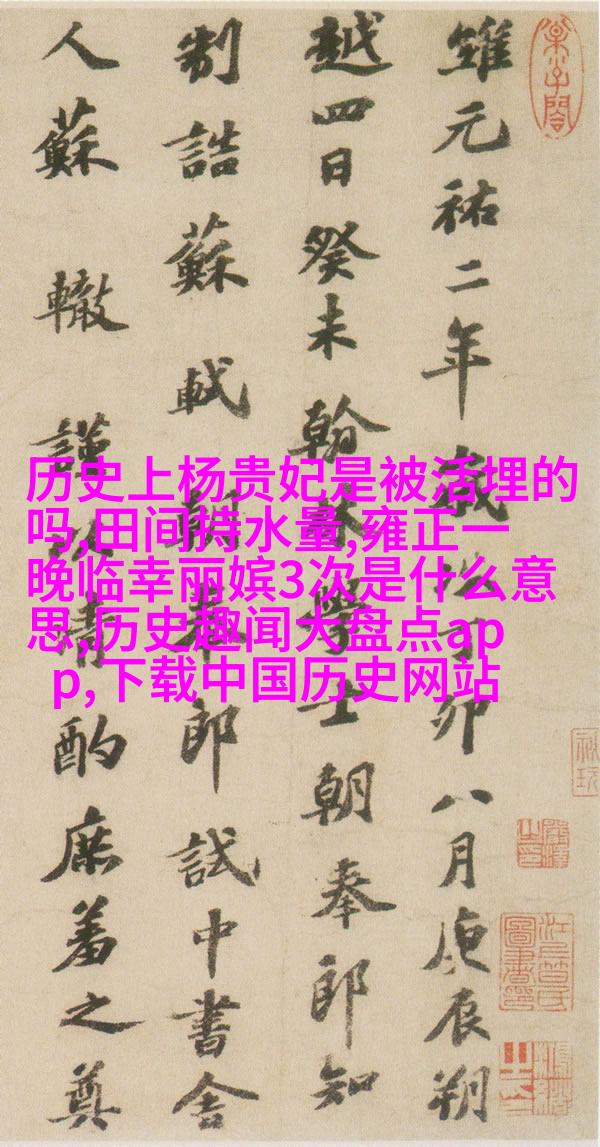 維元祐二年歲次丁卯八月庚辰朔
越四日癸未翰林學士朝奉郎知
制誥蘇軾朝奉郎試中書舍
人蘇轍謹以清酌庶羞之奠
历史上杨贵妃是被活埋的
吗,田间持水量,雍正一
晚临幸丽嫔3次是什么意
思,历史趣闻大盘点ap
p,下载中国历史网站